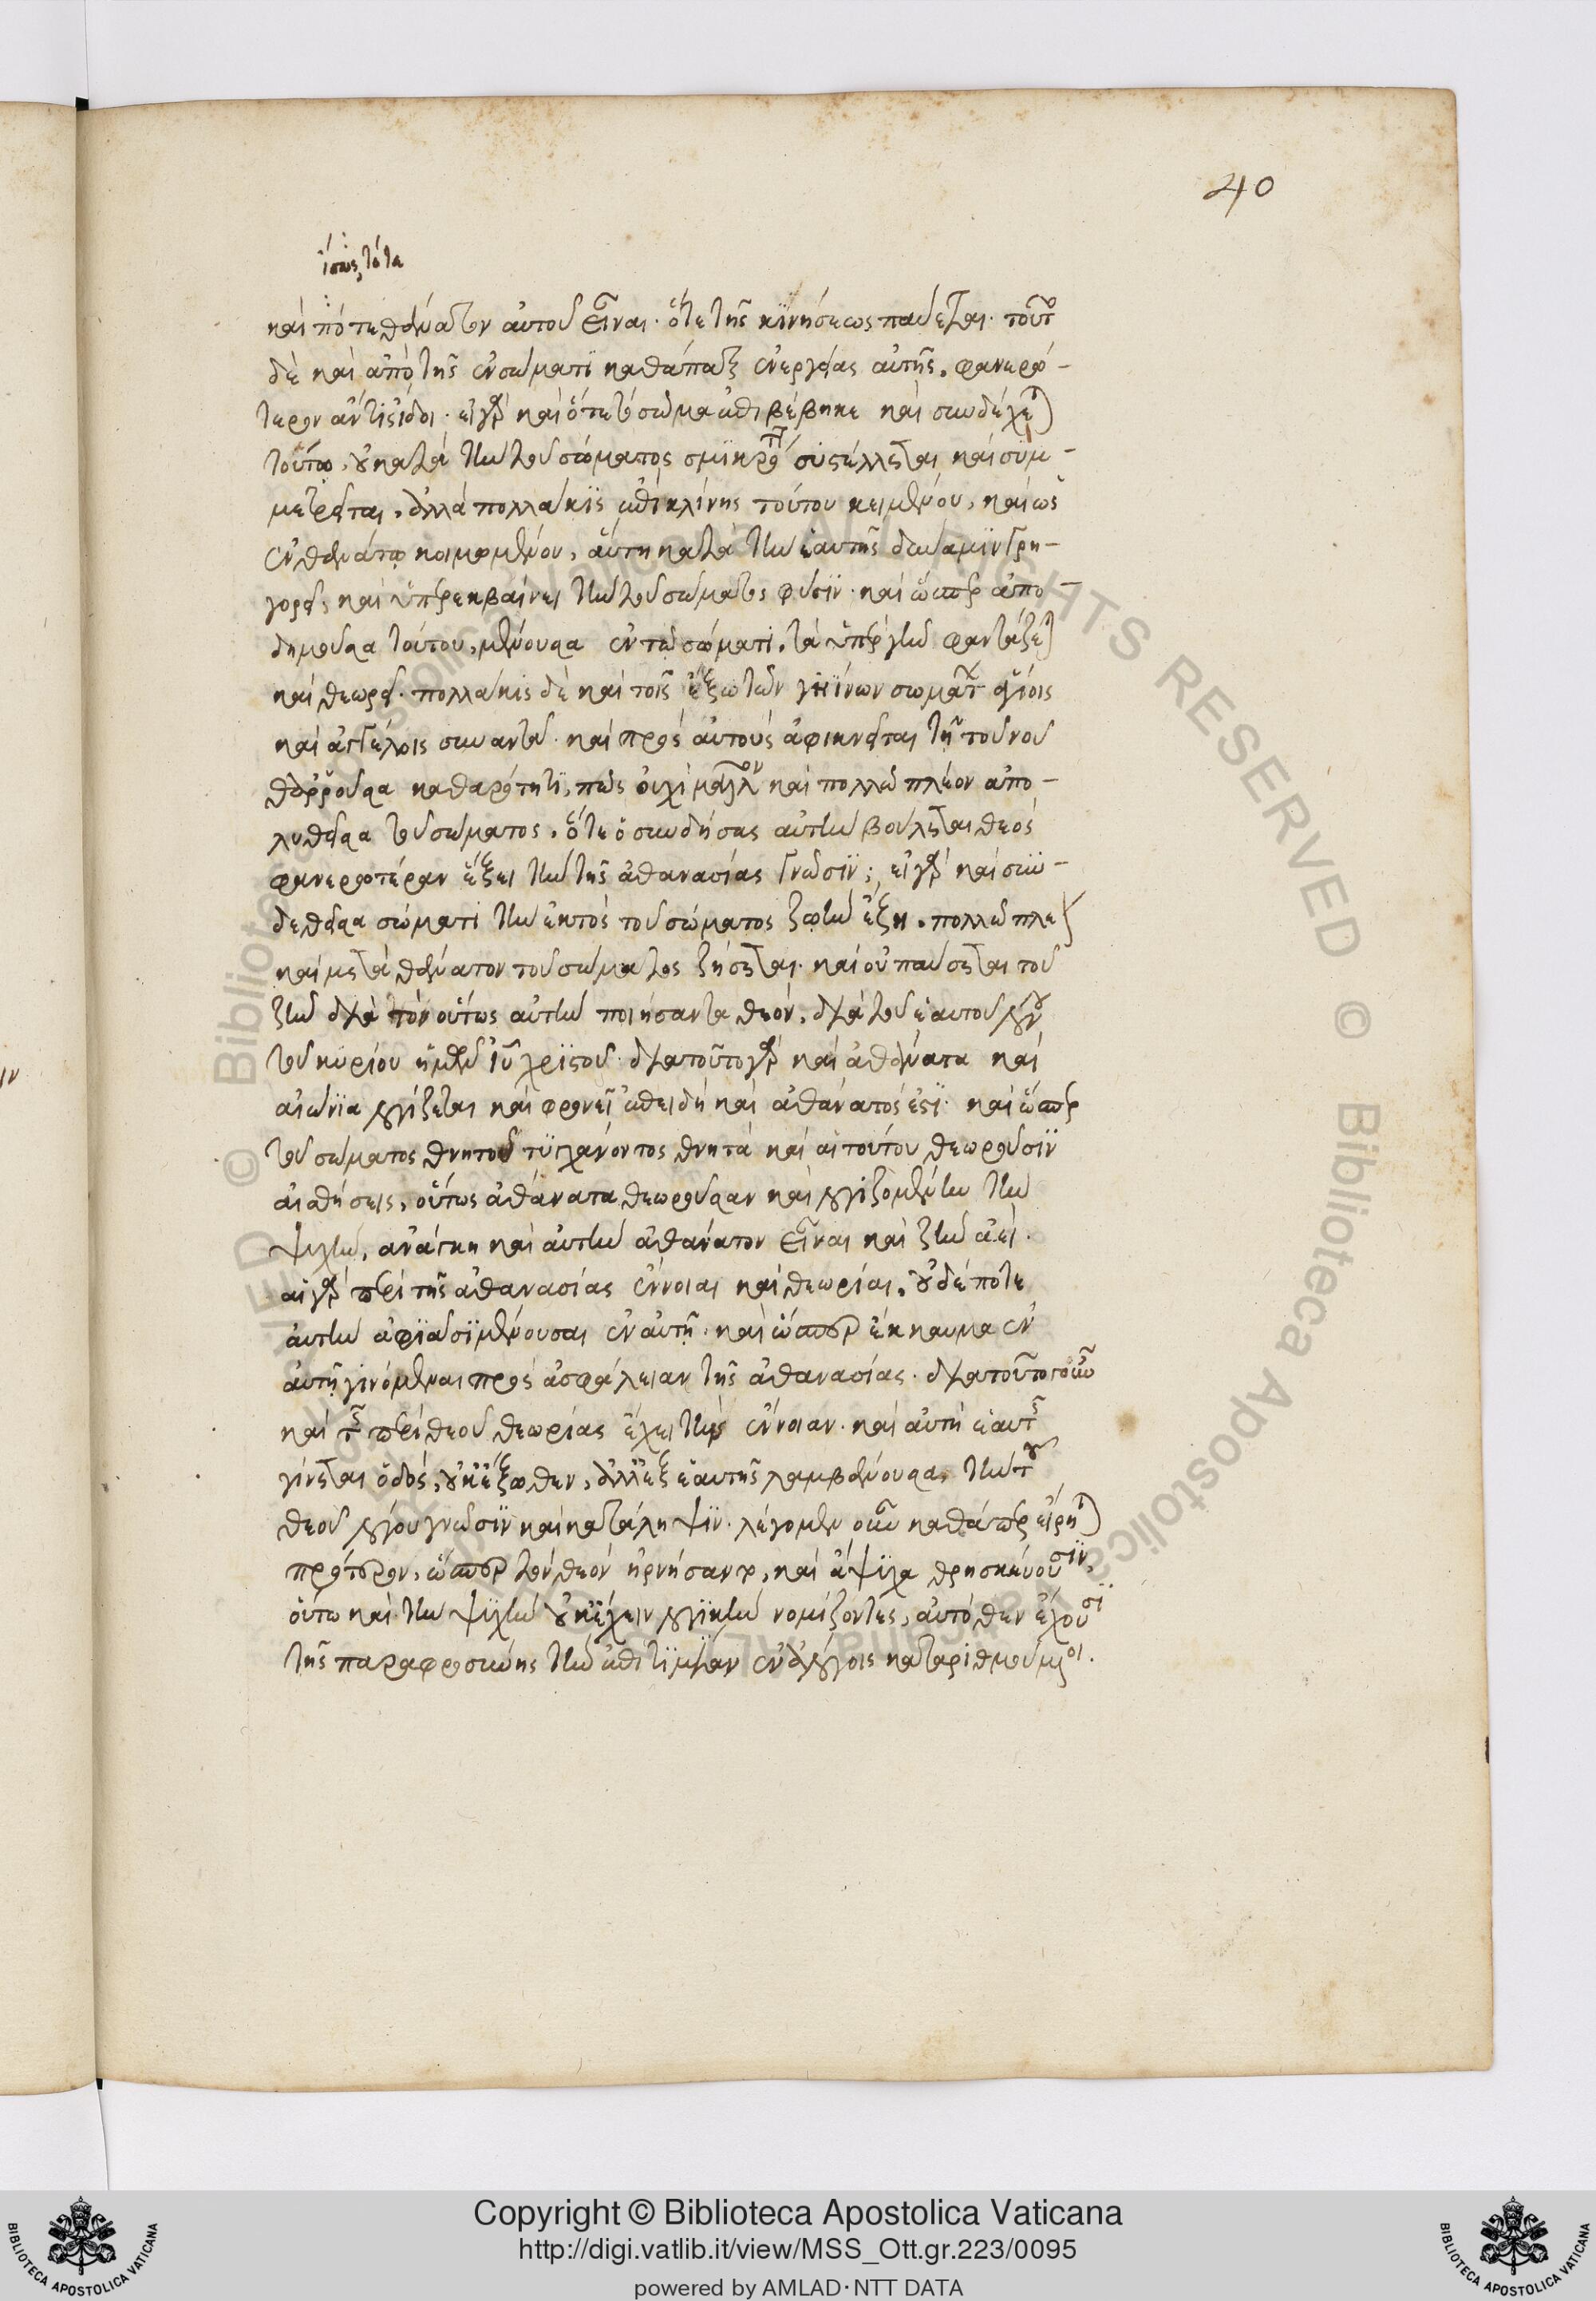 ἴσως, τότε
40
καὶ πότε θάνατον αὐτοῦ εἶναι· ὅτε τῆς κινήσεως παύεται· τοῦτο
δὲ καὶ ἀπὸ τῆς ἐν σώματι καθάπαξ ἐνεργείας αὐτῆς. φανερώ-
τερον ἄν τις ἴδοι· εἰ γὰρ καὶ ὅτε τὸ σῶμα ἐπιβέβηκε καὶ συνδέχεται
τούτω, οὐ κατὰ τὴν τοῦ σώματος σμικρότητα συστέλλεται καὶ συμ-
μετρεῖται, ἀλλὰ πολλάκις ἐπὶ κλίνης τούτου κειμένου, καὶ ὡς
ἐν θανάτω κοιμωμένου, αὕτη κατὰ τὴν ἑαυτῆς δύναμιν γρη-
γορεῖ, καὶ ὑπερεκβαίνει τὴν τοῦ σώματος φύσιν· καὶ ὥσπερ ἀπο-
δημοῦσα τούτου, μένουσα ἐν τῶ σώματι, τὰ ὑπὲρ γῆν φαντάζεται
καὶ θεωρεῖ· πολλάκις δὲ καὶ τοῖς ἔξω τῶν γηΐνων σωμάτων ἁγίοις
καὶ ἀγγέλοις συναντᾶ· καὶ πρὸς αὐτοὺς ἀφικνεῖται τῆ τοῦ νοῦ
θαρροῦσα καθαρότητι, πῶς οὐχὶ μᾶλλον καὶ πολλῶ πλέον ἀπο-
λυθεῖσα τοῦ σώματος, ὅτε ὁ συνδήσας αὐτὴν βούλεται θεὸς
φανερωτέραν ἕξει τὴν τῆς ἀθανασίας γνῶσιν; εἰ γὰρ καὶ συν-
δεθεῖσα σώματι τὴν ἐκτὸς τοῦ σώματος ζωὴν ἔζη. πολλῶ πλέον
καὶ μετὰ θάνατον τοῦ σώματος ζήσεται· καὶ οὐ παύσεται τοῦ
ζῆν διὰ τὸν οὕτως αὐτὴν ποιήσαντα θεὸν, διὰ τοῦ ἑαυτοῦ λόγου
τοῦ κυρίου ἡμῶν ἰῦ χριστοῦ· διατοῦτο γὰρ καὶ ἀθάνατα καὶ
αἰώνια λογίζεται καὶ φρονεῖ ἐπειδὴ καὶ ἀθάνατός ἐστι· καὶ ὥσπερ
τοῦ σώματος θνητοῦ τυγχάνοντος θνητὰ καὶ αἱ τούτου θεωροῦσιν
αἰσθήσεις, οὕτως ἀθάνατα θεωροῦσαν καὶ λογιζομένην τὴν
ψυχὴν, ἀνάγκη καὶ αὐτὴν ἀθάνατον εἶναι καὶ ζῆν ἀεί·
αἱ γὰρ περὶ τῆς ἀθανασίας ἔννοιαι καὶ θεωρίαι, οὐδέποτε
αὐτὴν ἀφιᾶσι μένουσαι ἐν αὐτῆ· καὶ ὥσπερ ἔκκαυμα ἐν
αὐτῆ γινόμεναι πρὸς ἀσφάλειαν τῆς ἀθανασίας· διατοῦτο γοῦν
καὶ τῆς περὶ θεοῦ θεωρίας ἔχει τὴν ἔννοιαν· καὶ αὐτὴ ἑαυτῆς
γίνεται ὁδός, οὐκ ἔξωθεν, ἀλλ' ἐξ ἑαυτῆς λαμβάνουσα, τὴν τοῦ
θεοῦ λόγου γνῶσιν καὶ κατάληψιν· λέγομεν οὖν καθάπερ εἴρηται
πρότερον, ὥσπερ τὸν θεὸν ἠρνήσαντο, καὶ ἄψυχα θρησκεύουσιν,
οὕτω καὶ τὴν ψυχὴν οὐκ ἔχειν λογικὴν νομίζοντες, αὐτόθεν ἔχουσι
τῆς παραφροσύνης τὴν ἐπιτιμίαν ἐν ἀλόγοις καταριθμούμενοι.
Copyright © Biblioteca Apostolica Vaticana
http://digi.vatlib.it/view/MSS_Ott.gr.223/0095
powered by AMLAD·NTT DATA